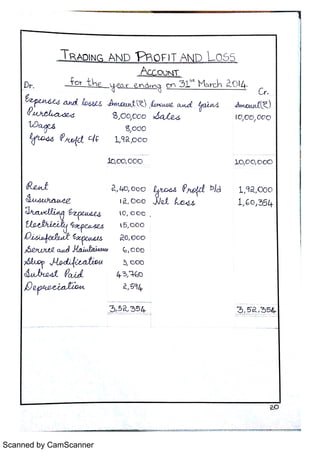 TRADING AND PROFIT AND LOSS
ACCOUNT
for the year ending on 31st March 2014
Dr. Cr.
Expenses and losses Amount(₹) Revenue and gains Amount(₹)
Purchases 8,00,000 Sales 10,00,000
Wages 8,000
Gross Profit c/f 1,92,000
10,00,000 10,00,000
Rent 2,40,000 Gross Profit b/d 1,92,000
Insurance 12,000 Net Loss 1,60,354
Travelling Expenses 10,000
Electricity Expenses 15,000
Disinfectent Expenses 20,000
Service and Maintainance 6,000
Shop Modification 3,000
Interest Paid 43,760
Depreciation 2,594
3,52,354 3,52,354
20
Scanned by CamScanner